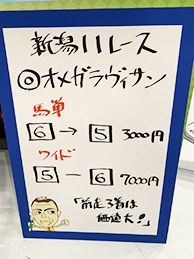 新潟11レース
◎オメガラヴィサン
馬単
6→5 3000円
ワイド
5－6 7000円
「前走3着は
価値大!」